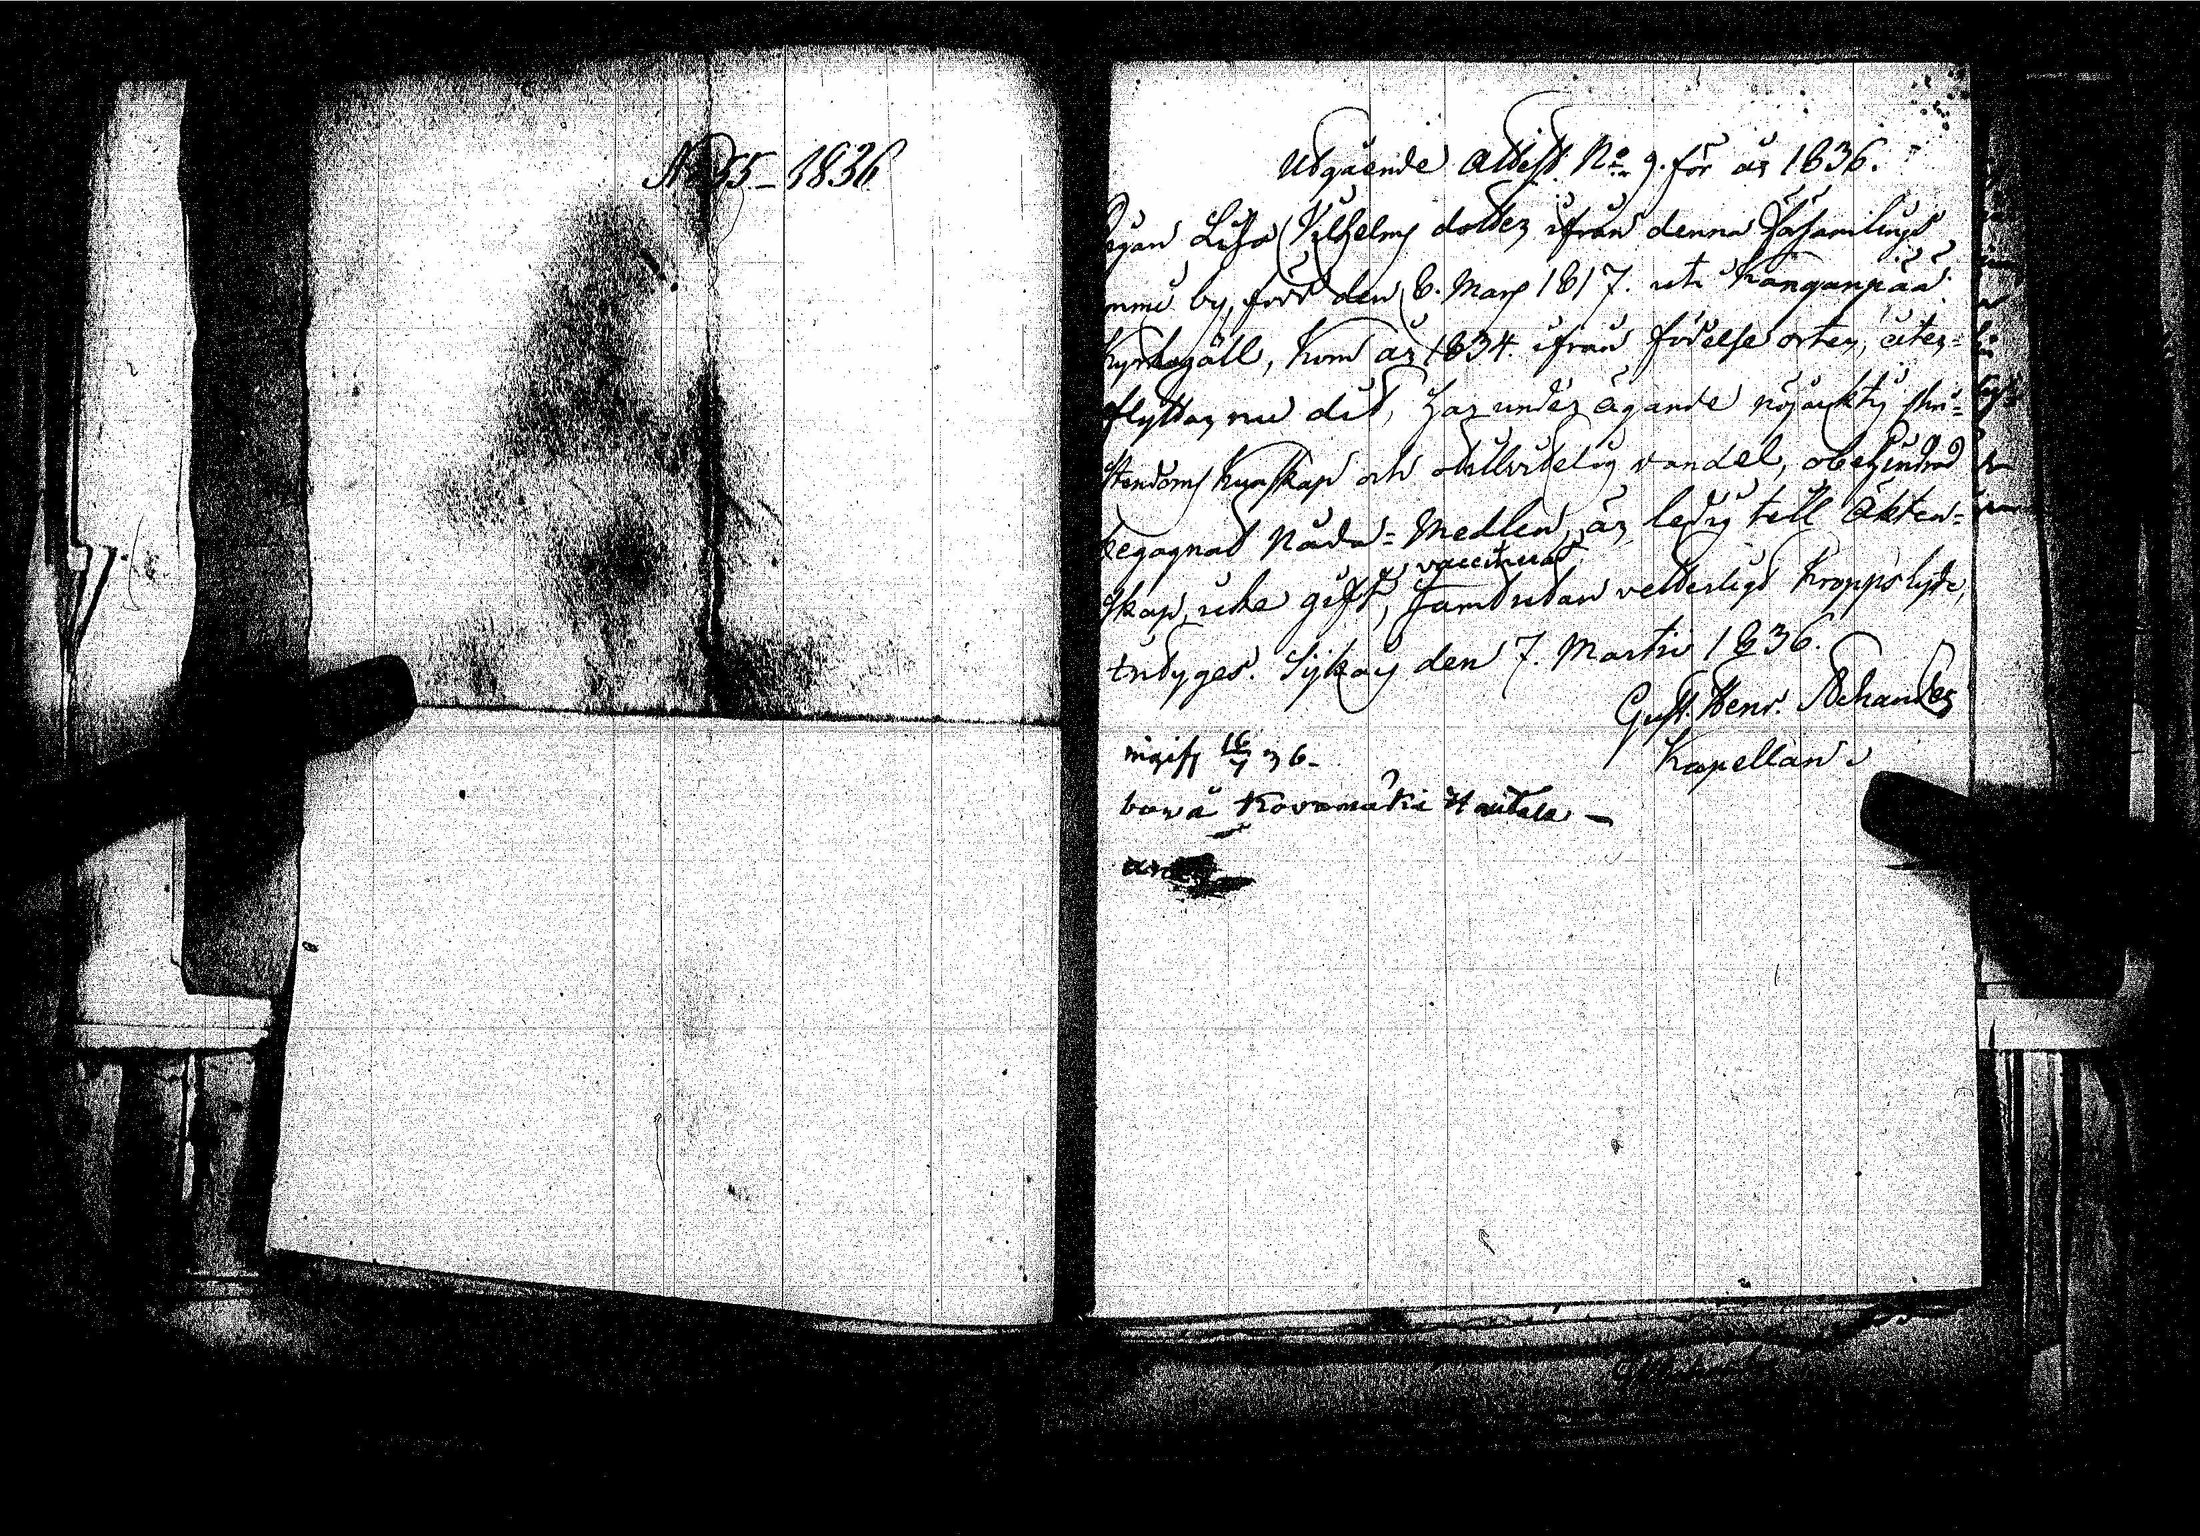 No 55 – 1836
Utgående Attest No 9. för år 1836.
Pigan Lisa Vilhelms dotter ifrån denna Församlings
by, född den 6. Mars 1817. uti Kanganpää
Kyrkogäll, kom år 1834. ifrån födelse orten, åter=
flyttar nu dit, har under ägande nöjaktig chri=
stendoms kunskap och otillvitelig vandel, obehindrad
begagnat Nåda=Medlen, är ledig till Äkten=
skap, icke gift, vaccinerad, samt utan vetterligt kroppslyte,
betyges. den 7. Martii 1836.
Gust. Henr.
Kapellan.
ingift 16/7 36–
bor å Kovamäki Hautala –